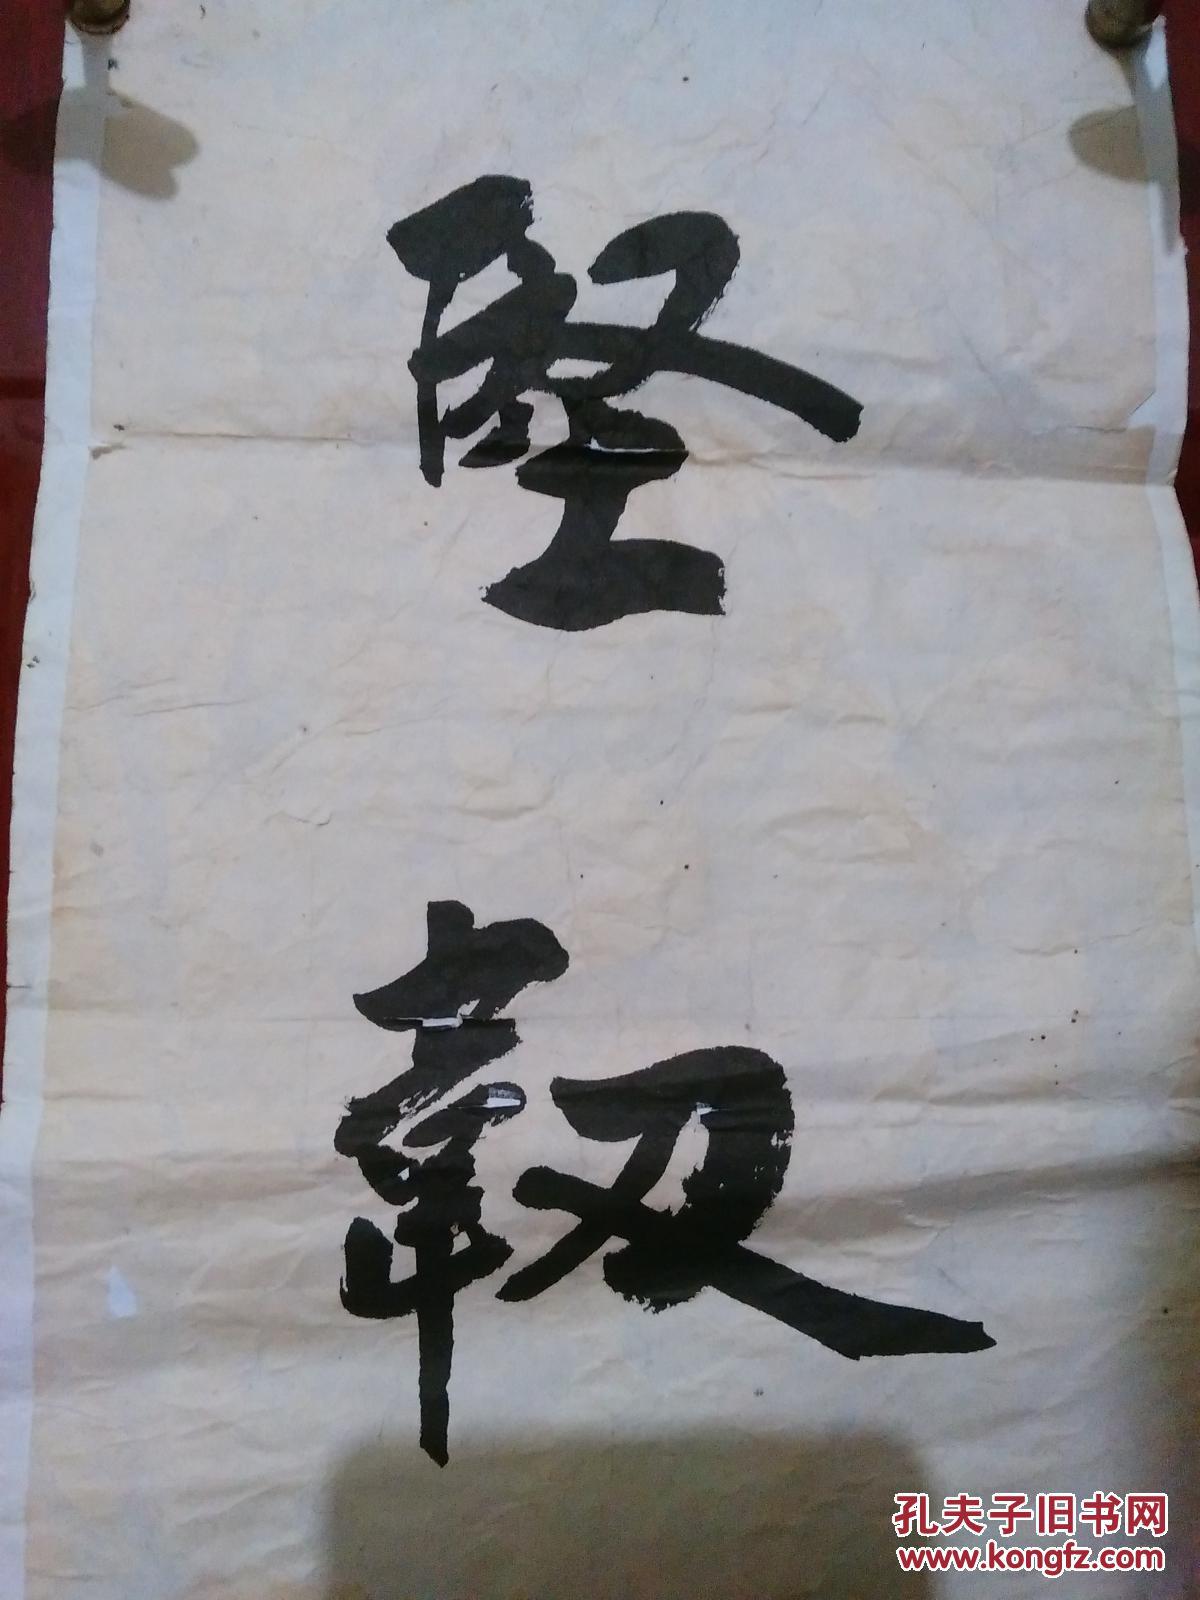 堅
韌
孔夫子旧书网
www.kongfz.com